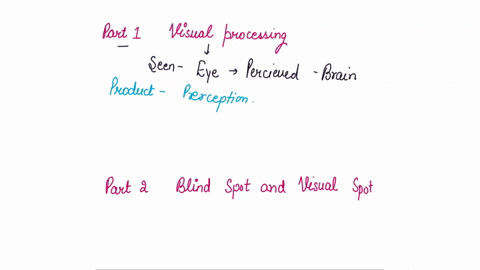 Part 1 Visual processing
Seen - Eye → Percieved - Brain
Product - Perception.
Part 2 Blind Spot and Visual Spot